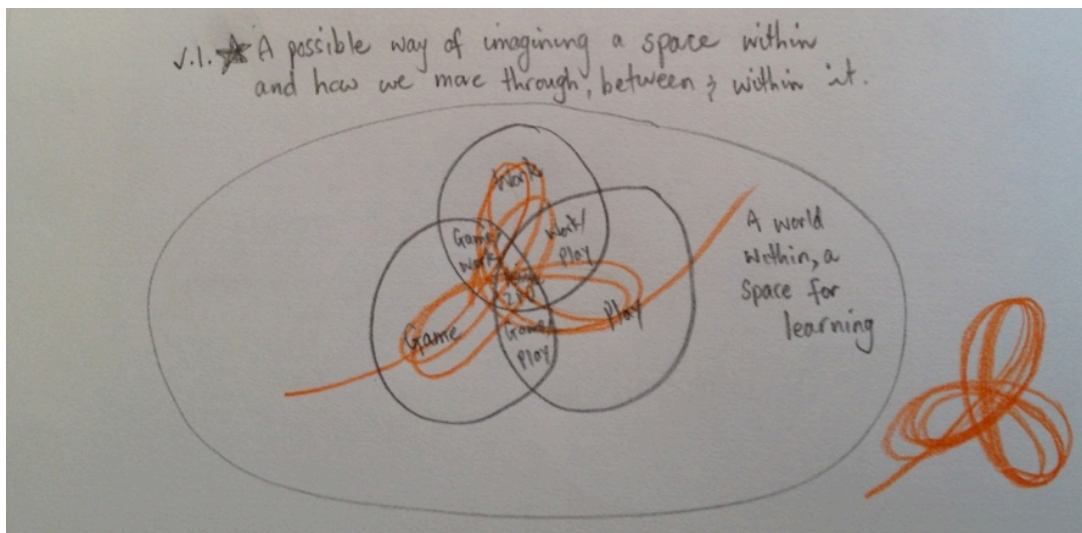 V.1. ★ A possible way of imagining a space within
and how we move through, between & within it.
Work
Game/
Work
Work/
Play
Game
Game/
Play
Play
A world
within, a
space for
learning